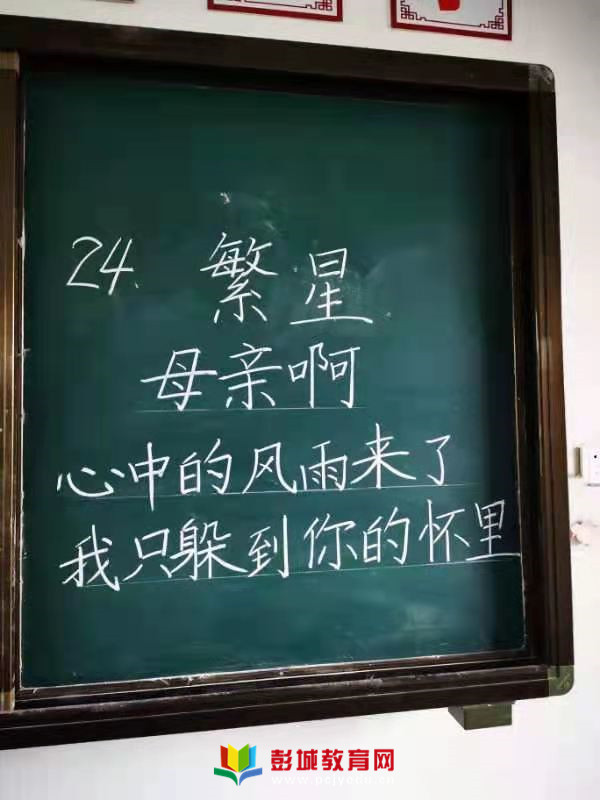 24. 繁星
母亲啊
心中的风雨来了
我只躲到你的怀里
彭城教育网